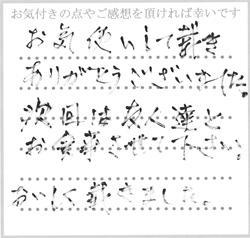 お気付きの点やご感想を頂ければ幸いです
お気使いして戴き
ありがとうございました。
次回は友人達と
お食事させて下さい。
おいしく戴きました。